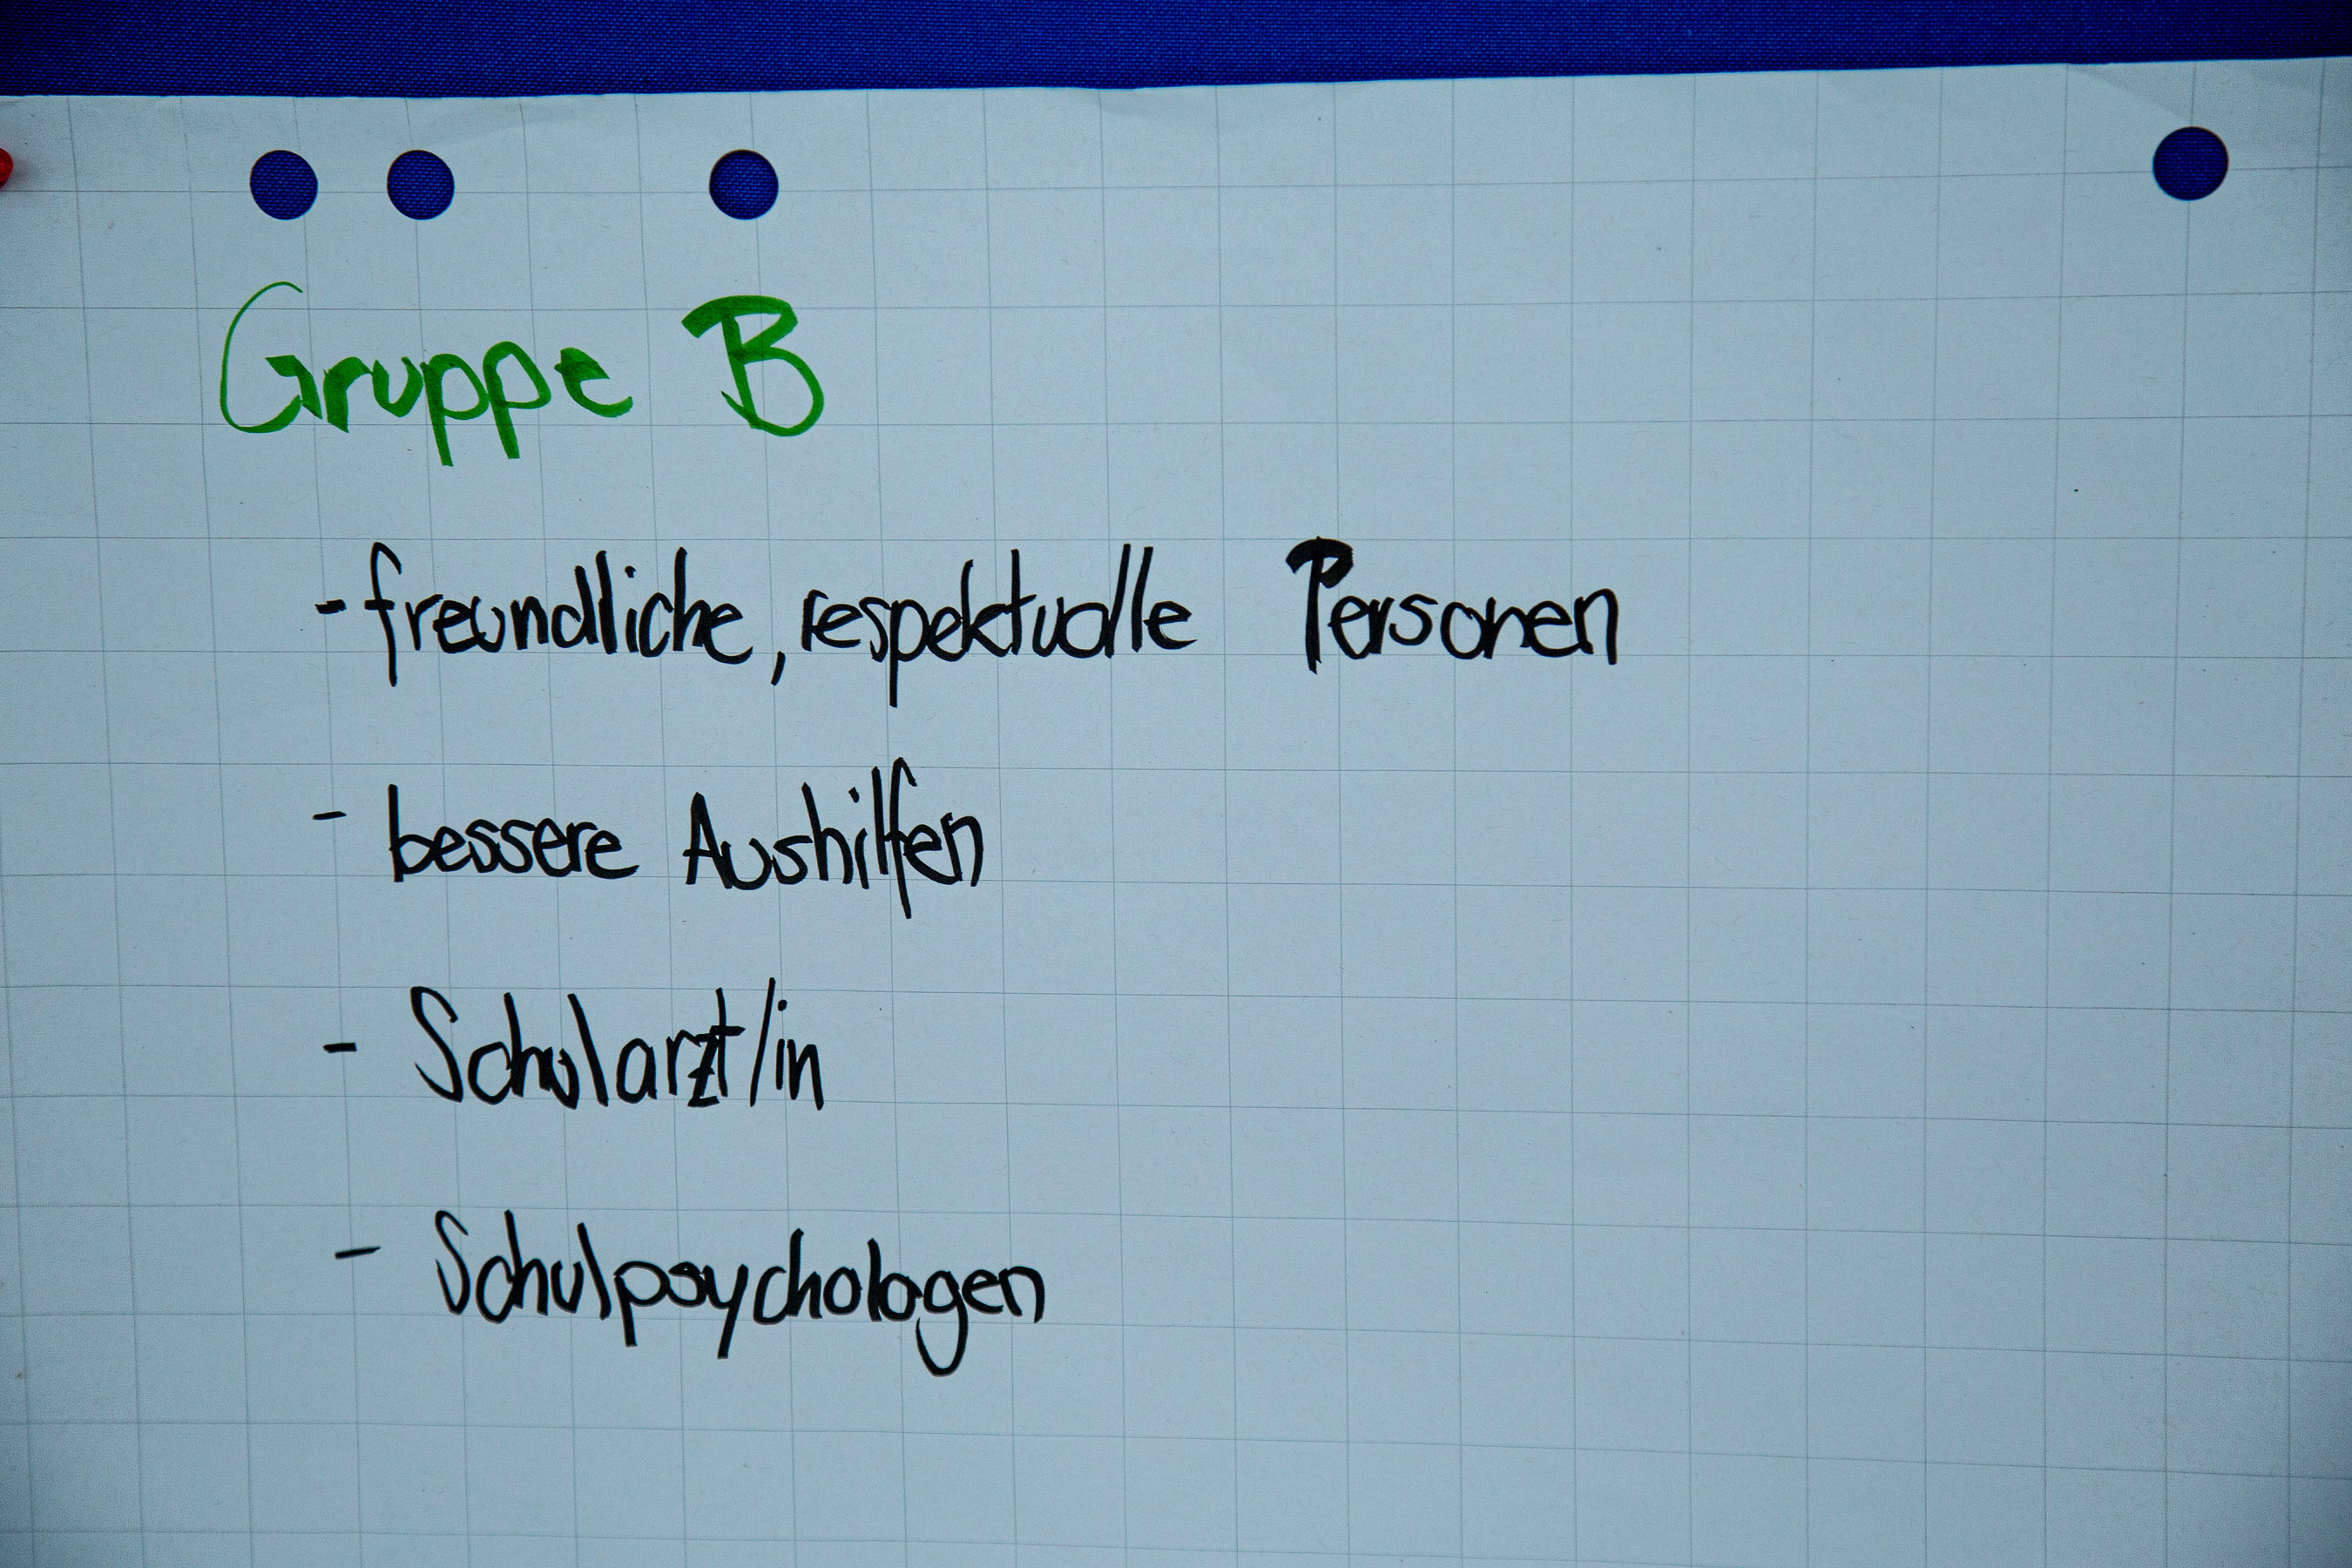 Gruppe B
- freundliche, respektvolle Personen
- bessere Aushilfen
- Schularzt/in
- Schulpsychologen